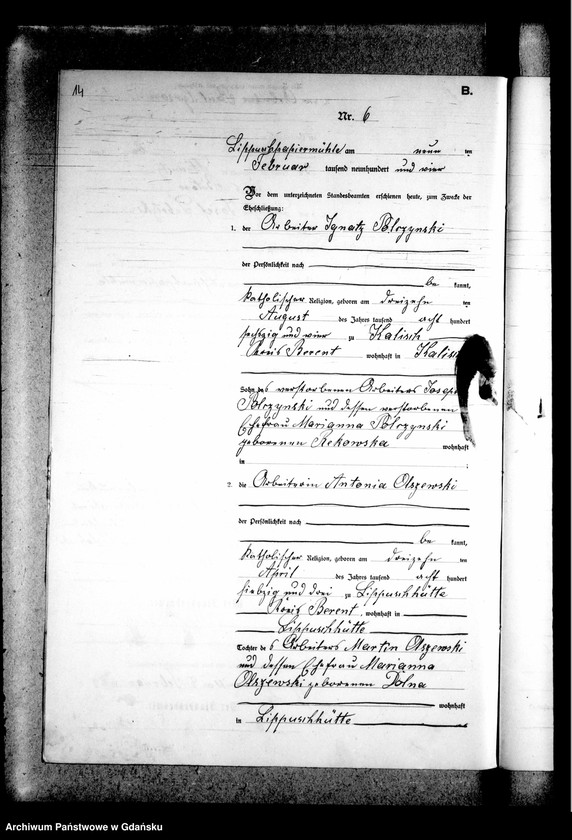 14
B.
Nr. 6
Lippuschpapiermühle am neun ten
Februar tausend neunhundert und vier
Vor dem unterzeichneten Standesbeamten erschienen heute, zum Zwecke der
Eheschließung:
1. der Arbeiter Ignatz Polczynski
der Persönlichkeit nach
be kannt,
katholischer Religion, geboren am dreizehn ten
August des Jahres tausend acht hundert
sechzig und vier zu Kalisch
Kreis Berent wohnhaft in Kalisch
Sohn des verstorbenen Arbeiters Josep
Polczynski und dessen verstorbenen
Ehefrau Marianna Polczynski
geborenen Rekowska wohnhaft
in ;
2. die Arbeiterin Antonia Olszewski
der Persönlichkeit nach
be kannt,
katholischer Religion, geboren am dreizehn ten
April des Jahres tausend acht hundert
siebzig und drei zu Lippuschhütte
Kreis Berent, wohnhaft in
Lippuschhütte
Tochter des Arbeiters Martin Olszewski
und dessen Ehefrau Marianna
Olszewski geborenen Dolna
wohnhaft
in Lippuschhütte
Archiwum Państwowe w Gdańsku